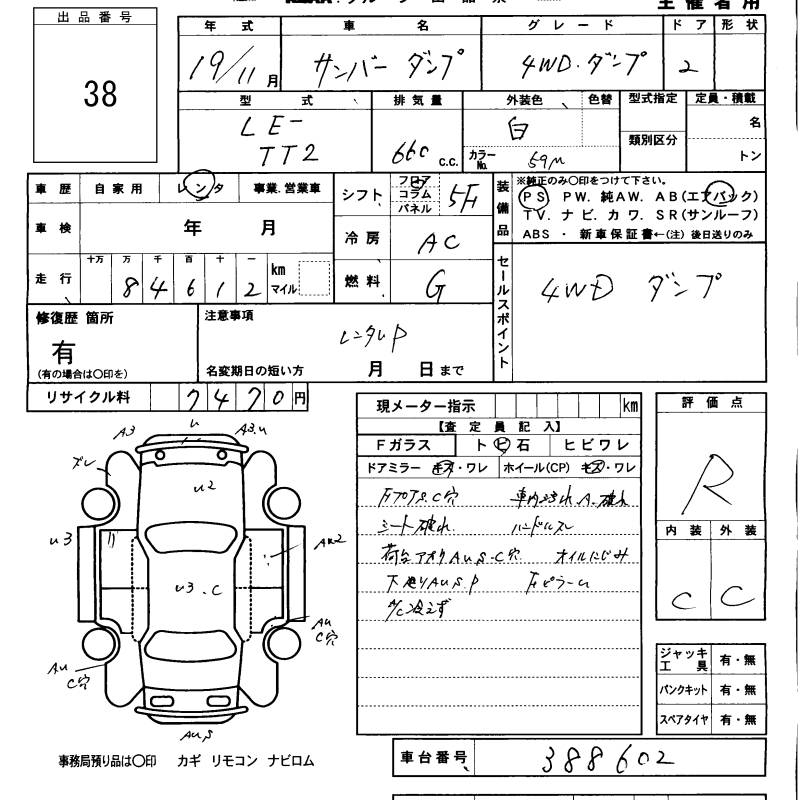 主催者用
出品番号
38
年式 車名 グレード ドア 形状
19/11月 サンバー ダンプ 4WD・ダンプ 2
型式 排気量 外装色 色替 型式指定 定員・積載
LE-
TT2 660 c.c. 白 カラーNo. 59M 類別区分 名
トン
車歴 自家用 レンタ 事業.営業車
シフト フロア コラム パネル 5F
装備品 ※純正のみ〇印をつけて下さい。
PS PW. 純AW. AB(エアバック)
TV. ナビ. カワ. SR(サンルーフ)
ABS ・ 新車保証書←(注) 後日送りのみ
車検 年 月
冷房 AC
走行 十万 万 千 百 十 一 km マイル
84612
燃料 G
セールスポイント 4WD ダンプ
修復歴 箇所
有
(有の場合は〇印を)
注意事項
レンタUP
名変期日の短い方 月 日まで
リサイクル料 7470円
現メーター指示 km
【査定員記入】
Fガラス トビ石 ヒビワレ
ドアミラー キズ・ワレ ホイール(CP) キズ・ワレ
評価点
R
内装 外装
C C
C穴 車内汚れ A.破れ
シート破れ ハンドルスレ
荷台アオリAU.S.C穴 オイルにじみ
下廻りAU.S.P
A/C冷えず
A3 U A3.U
ズレ
U2
U3 AU2
U3.C
AU C穴
AU C穴
AU,S
ジャッキ工具 有・無
パンクキット 有・無
スペアタイヤ 有・無
事務局預り品は〇印 カギ リモコン ナビロム
車台番号 388602